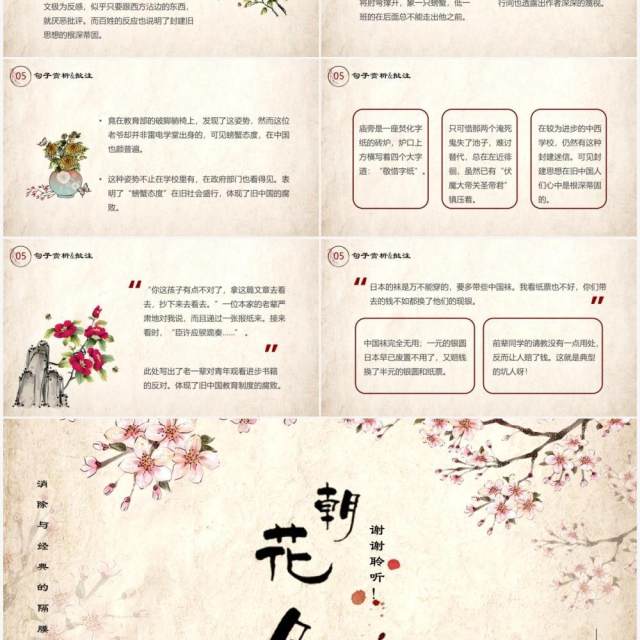 文极为反感，似乎只要跟西方沾边的东西，
就厌恶批评。而百姓的反应也说明了封建旧
思想的根深蒂固。
将肘弯撑开，象一只螃蟹，低一
班的在后面总不能走出他之前。
行间也透露出作者深深的蔑视。
05 句子赏析&批注
• 竟在教育部的破脚躺椅上，发现了这姿势，然而这位
老爷却并非雷电学堂出身的，可见螃蟹态度，在中国
也颇普遍。
• 这种姿势不止在学校里有，在政府部门也看得见。表
明了“螃蟹态度”在旧社会盛行，体现了旧中国的腐
败。
05 句子赏析&批注
庙旁是一座焚化字
纸的砖炉，炉口上
方横写着四个大字
道：“敬惜字纸”。
只可惜那两个淹死
鬼失了池子，难过
替代，总在左近徘
徊，虽然已有“伏
魔大帝关圣帝君”
镇压着。
在较为进步的中西
学校，仍然有这种
封建迷信。可见封
建思想在旧中国人
们心中是根深蒂固
的。
05 句子赏析&批注
“你这孩子有点不对了，拿这篇文章去看
去，抄下来去看去。”一位本家的老辈严
肃地对我说，而且递过一张报纸来。接来
看时，“臣许应骙跪奏……”。
此处写出了老一辈对青年观看进步书籍
的反对。体现了旧中国教育制度的腐败。
05 句子赏析&批注
日本的袜是万不能穿的，要多带些中国袜。我看纸票也不好，你们带
去的钱不如都换了他们的现银。
中国袜完全无用；一元的银圆
日本早已废置不用了，又赔钱
换了半元的银圆和纸票。
前辈同学的请教没有一点用处，
反而让人赔了钱。这就是典型
的坑人呀！
消除与经典的隔膜
朝花
谢谢聆听！